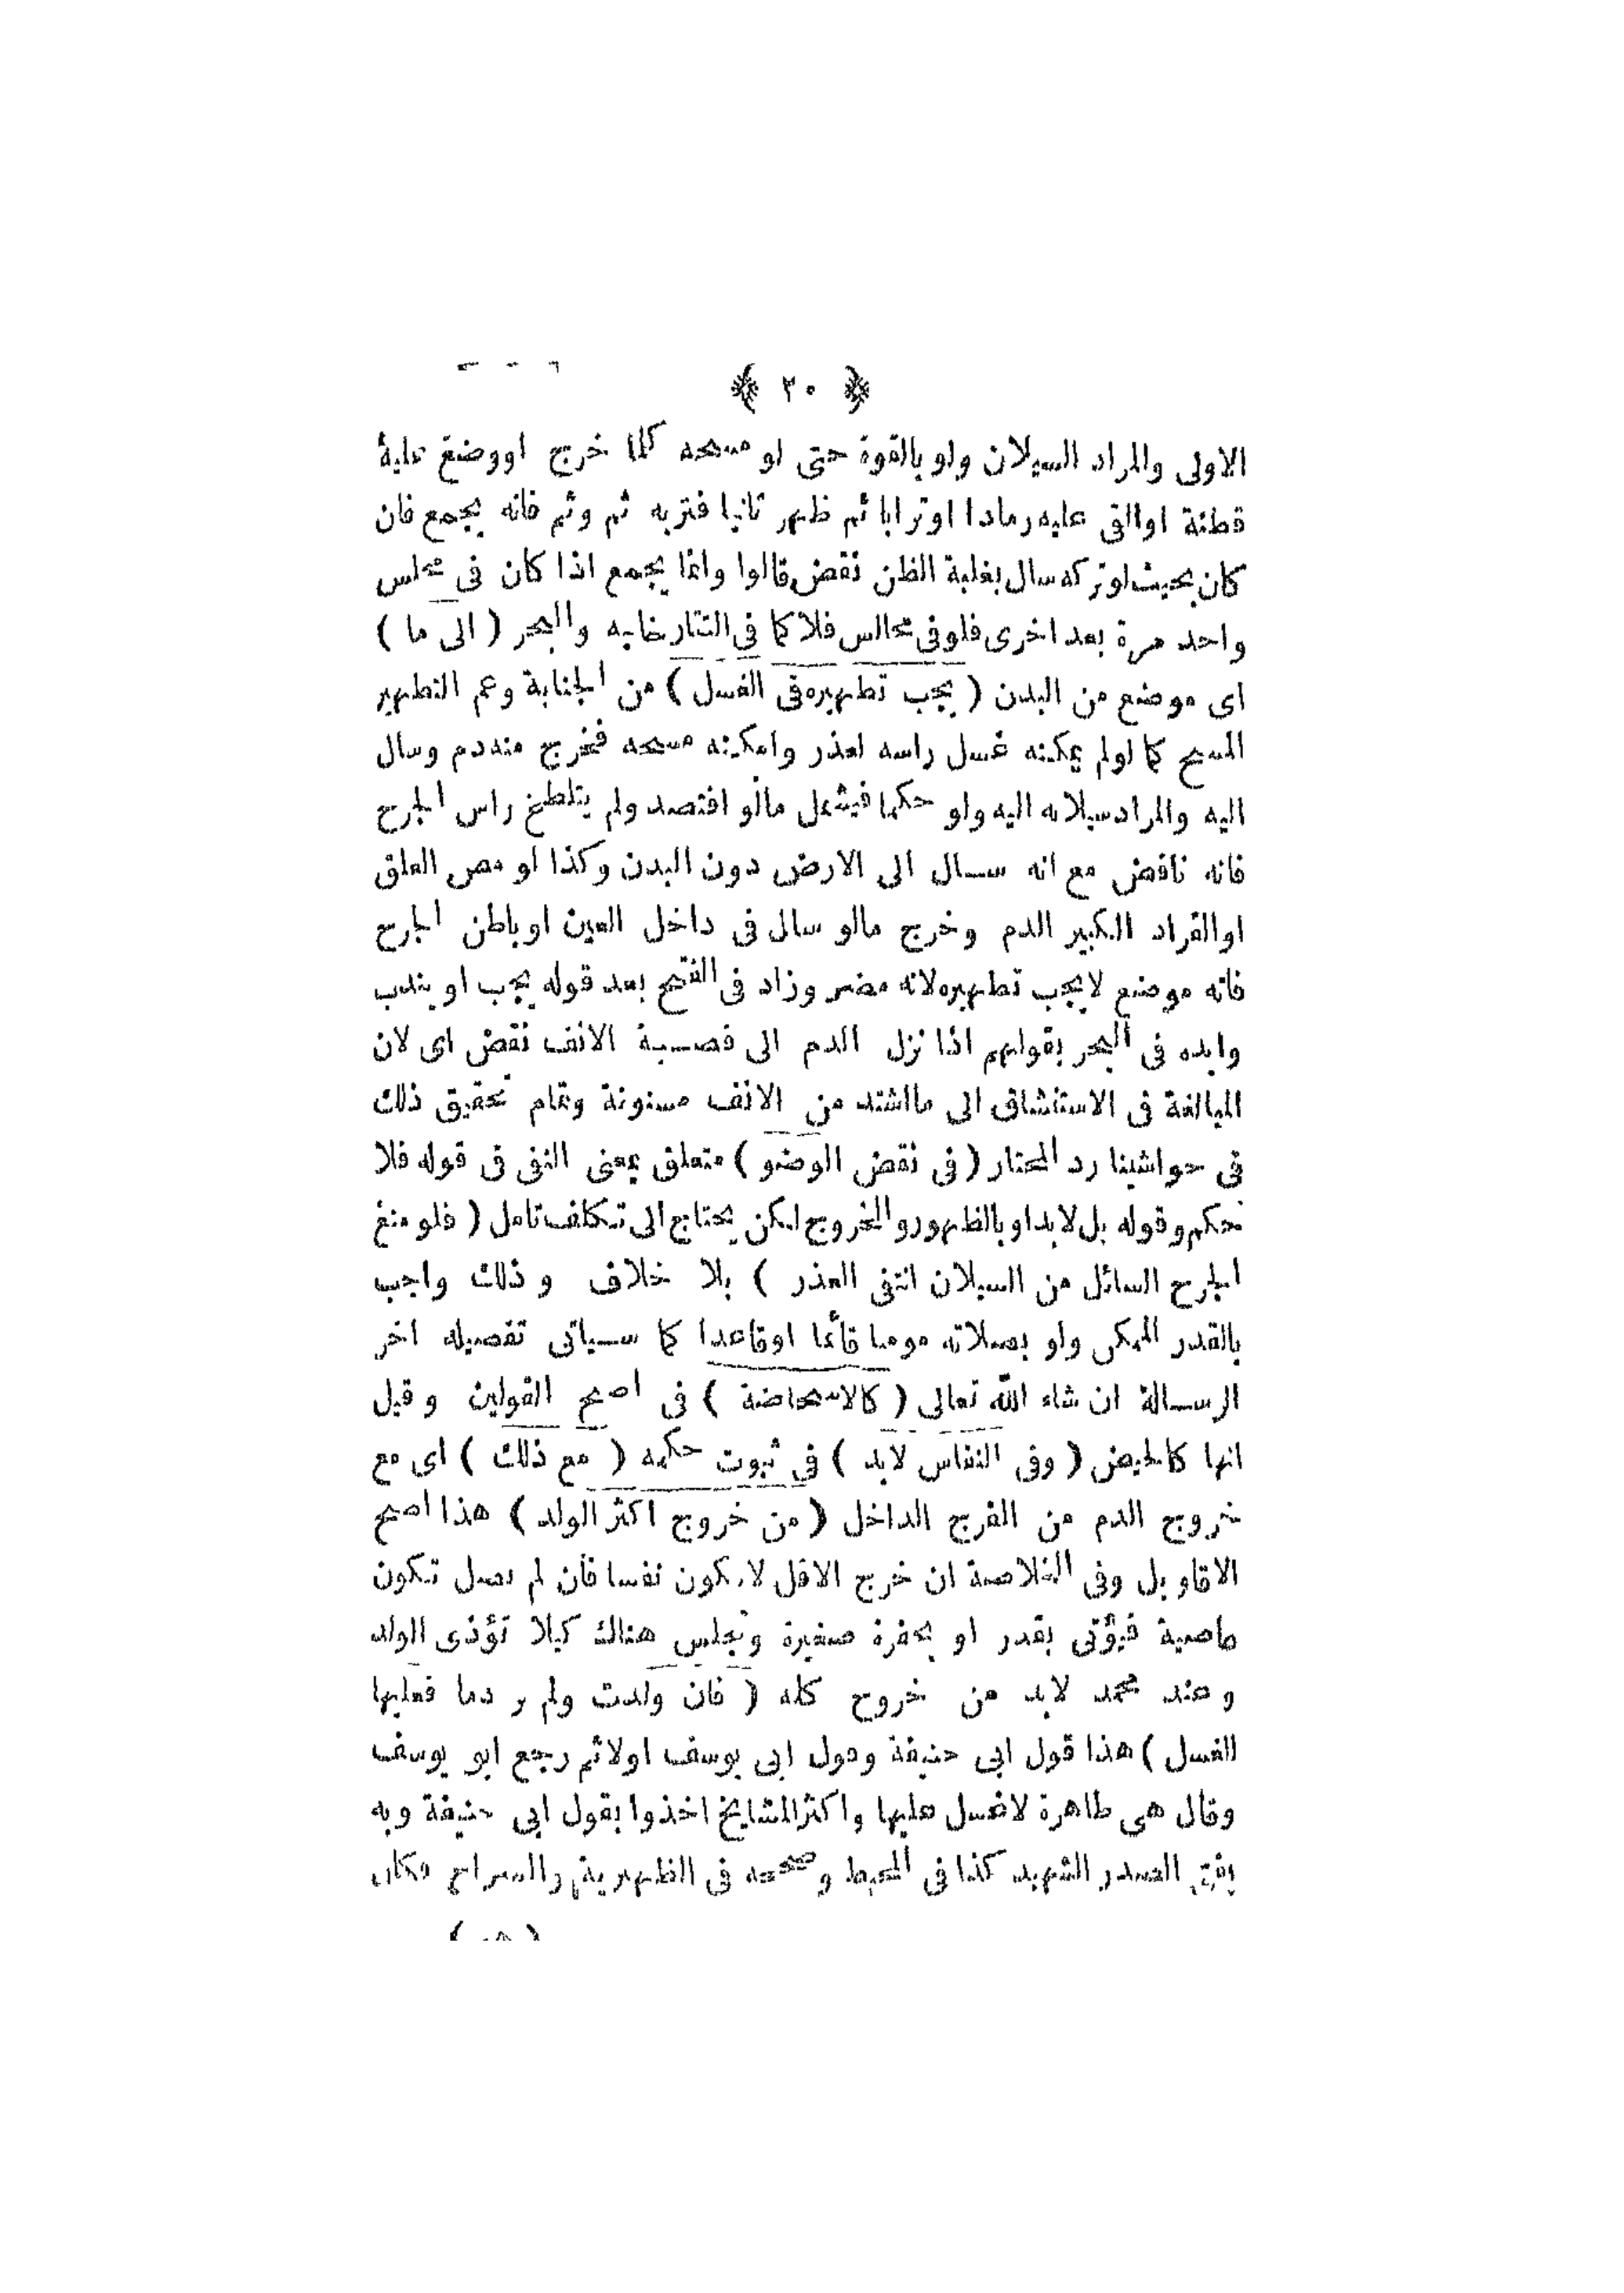 ﴿ ٢٠ ﴾
الاولى والمراد السيلان ولو بالقوة حتى لو مسحه كلما خرج اووضع عليه
قطنة اوالقى عليه رمادا اوترابا ثم ظهر ثانيا فتربه ثم وثم فانه يجمع فان
كان بحيث لوتركه سال بغلبة الظن نقض قالوا وانما يجمع اذا كان فى مجلس
واحد مرة بعد اخرى فلوفى مجالس فلا كما فى التتارخانيه والبحر ( الى ما )
اى موضع من البدن ( يجب تطهيره فى الغسل ) من الجنابة وعم التطهير
المسح كما لولم يمكنه غسل راسه لعذر وامكنه مسحه فخرج منه دم وسال
اليه والمراد سيلانه اليه ولو حكما فيشمل مالو افتصد ولم يتلطخ راس الجرح
فانه ناقض مع انه سال الى الارض دون البدن وكذا لو مص العلق
اوالقراد الكبير الدم وخرج مالو سال فى داخل العين اوباطن الجرح
فانه موضع لايجب تطهيره لانه مضر وزاد فى الفتح بعد قوله يجب او يندب
وايده فى البحر بقولهم اذا نزل الدم الى قصبة الانف نقض اى لان
المبالغة فى الاستنشاق الى مااشتد من الانف مسنونة وتمام تحقيق ذلك
فى حواشينا رد المحتار ( فى نقض الوضو ) متعلق بمعنى النفى فى قوله فلا
حكم وقوله بل لابد او بالظهور والخروج لكن يحتاج الى تكلف تامل ( فلو منع
الجرح السائل من السيلان انتفى العذر ) بلا خلاف و ذلك واجب
بالقدر الممكن ولو بصلاته موميا قائما اوقاعدا كما سياتى تفصيله اخر
الرسالة ان شاء الله تعالى ( كالاستحاضة ) فى اصح القولين وقيل
انها كالحيض ( وفى النفاس لابد ) فى ثبوت حكمه ( مع ذلك ) اى مع
خروج الدم من الفرج الداخل ( من خروج اكثر الولد ) هذا اصح
الاقاويل وفى الخلاصة ان خرج الاقل لا يكون نفسا فان لم تصل تكون
عاصية فيؤتى بقدر او بحفرة صغيرة وتجلس هناك كيلا تؤذى الولد
وعند محمد لابد من خروج كله ( فان ولدت ولم تر دما فعليها
الغسل ) هذا قول ابى حنيفة وقول ابى يوسف اولا ثم رجع ابو يوسف
وقال هى طاهرة لاغسل عليها واكثرالمشايخ اخذوا بقول ابى حنيفة وبه
يفتى الصدر الشهيد كذا فى المحيط وصححه فى الظهيرية والسراج فكان